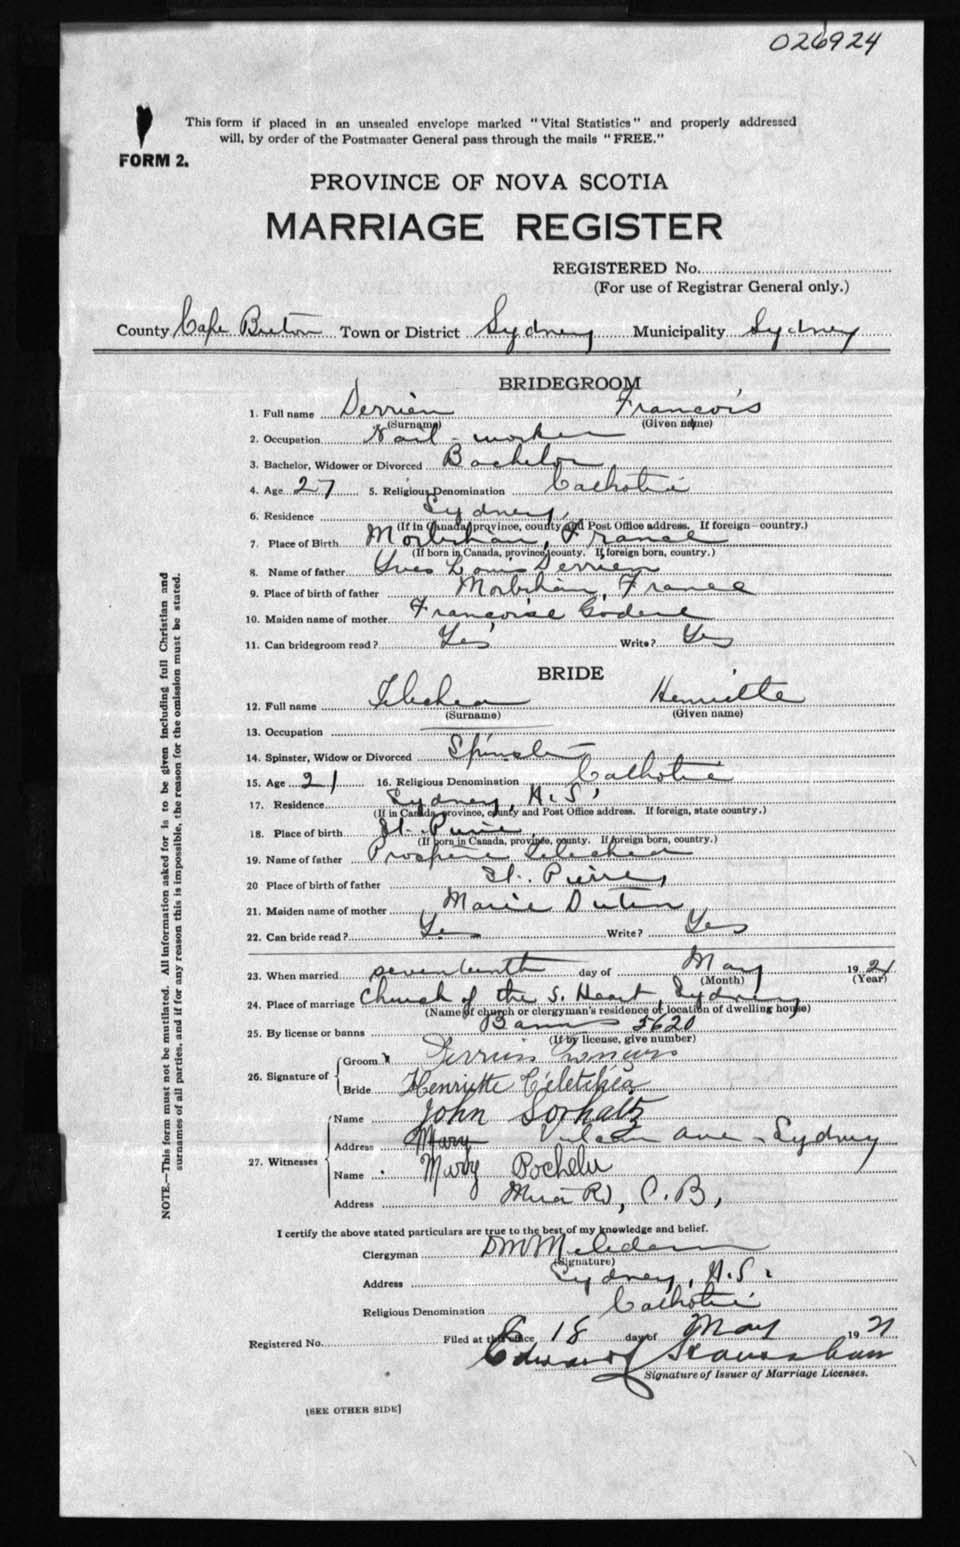 026924
This form if placed in an unsealed envelope marked "Vital Statistics" and properly addressed
will, by order of the Postmaster General pass through the mails "FREE."
FORM 2.
PROVINCE OF NOVA SCOTIA
MARRIAGE REGISTER
REGISTERED No.
(For use of Registrar General only.)
County Cape Breton Town or District Sydney Municipality Sydney
BRIDEGROOM
1. Full name Derrien François
(Surname) (Given name)
2. Occupation Nail-worker
3. Bachelor, Widower or Divorced Bachelor
4. Age 27 5. Religious Denomination Catholic
6. Residence Sydney,
(If in Canada, province, county and Post Office address. If foreign—country.)
7. Place of Birth Morbihan, France
(If born in Canada, province, county. If foreign born, country.)
8. Name of father Yves Louis Derrien
9. Place of birth of father Morbihan, France
10. Maiden name of mother Françoise
11. Can bridegroom read? Yes Write? Yes
BRIDE
12. Full name Henriette
(Surname) (Given name)
13. Occupation
14. Spinster, Widow or Divorced Spinster
15. Age 21 16. Religious Denomination Catholic
17. Residence Sydney, N.S.
(If in Canada, province, county and Post Office address. If foreign, state country.)
18. Place of birth St. Pierre,
(If born in Canada, province, county. If foreign born, country.)
19. Name of father
20 Place of birth of father St. Pierre,
21. Maiden name of mother Marie
22. Can bride read? Yes Write? Yes
23. When married seventeenth day of May 1921
(Month) (Year)
24. Place of marriage Church of the S. Heart, Sydney
(Name of church or clergyman's residence or location of dwelling house)
25. By license or banns Banns 5620
(If by license, give number)
26. Signature of
Groom
Bride Henriette
27. Witnesses
Name John
Address Mary Ave - Sydney
Name Mary
Address Mira Rd, C.B,
I certify the above stated particulars are true to the best of my knowledge and belief.
Clergyman
(Signature)
Address Sydney, N.S.
Religious Denomination Catholic
Registered No. Filed at this office 18 day of May 1921
Edward
Signature of Issuer of Marriage Licenses.
[SEE OTHER SIDE]
NOTE.—This form must not be mutilated. All information asked for is to be given including full Christian and
surnames of all parties, and if for any reason this is impossible, the reason for the omission must be stated.